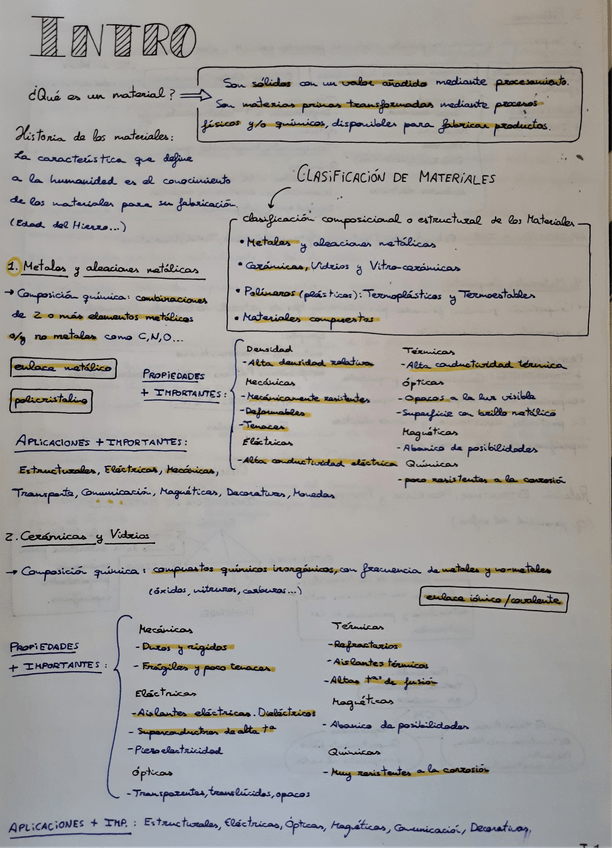 INTRO
¿Qué es un material? ⇒
Son sólidos con un valor añadido mediante procesamiento.
Son materias primas transformadas mediante procesos
físicos y/o químicos, disponibles para fabricar productos.
Historia de los materiales:
La característica que define
a la humanidad es el conocimiento
de los materiales para su fabricación
(Edad del Hierro...)
CLASIFICACIÓN DE MATERIALES
clasificación composicional o estructural de los Materiales
• Metales y aleaciones metálicas
• Cerámicas, Vidrios y Vitro-cerámicas
• Polímeros (plásticos): Termoplásticos y Termoestables
• Materiales compuestos
1. Metales y aleaciones metálicas
→ Composición química: combinaciones
de 2 o más elementos metálicos
o/y no metales como C, N, O...
enlace metálico
policristalino
PROPIEDADES
+ IMPORTANTES:
Densidad
- Alta densidad relativa
Mecánicas
- Mecánicamente resistentes
- Deformables
- Tenaces
Eléctricas
- Alta conductividad eléctrica
Térmicas
- Alta conductividad térmica
Ópticas
- Opacos a la luz visible
- Superficie con brillo metálico
Magnéticas
- Abanico de posibilidades
Químicas
- poco resistentes a la corrosión
APLICACIONES + IMPORTANTES:
Estructurales, Eléctricas, Mecánicas,
Transporte, Comunicación, Magnéticas, Decorativas, Monedas
2. Cerámicas y Vidrios
→ Composición química: compuestos químicos inorgánicos, con frecuencia de metales y no-metales
(óxidos, nitruros, carburos...)
enlace iónico/covalente
PROPIEDADES
+ IMPORTANTES:
Mecánicas
- Duros y rígidos
- Frágiles y poco tenaces
Eléctricas
- Aislantes eléctricos. Dieléctricos
- Superconductores de alta tª
- Piezoelectricidad
Ópticas
- Transparentes, translúcidos, opacos
Térmicas
- Refractarios
- Aislantes térmicos
- Altas tªs de fusión
Magnéticas
- Abanico de posibilidades
Químicas
- Muy resistentes a la corrosión
APLICACIONES + IMP.: Estructurales, Eléctricas, Ópticas, Magnéticas, Comunicación, Decorativas,